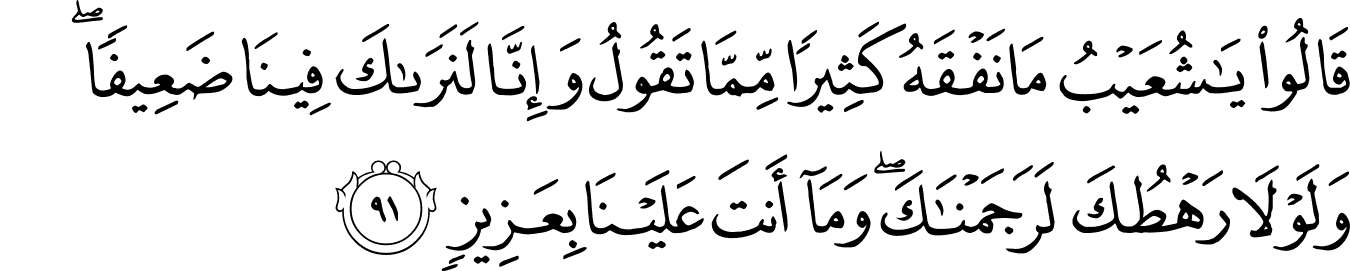 قَالُوا۟ يَـٰشُعَيْبُ مَا نَفْقَهُ كَثِيرًا مِّمَّا تَقُولُ وَإِنَّا لَنَرَىٰكَ فِينَا ضَعِيفًا ۖ
وَلَوْلَا رَهْطُكَ لَرَجَمْنَـٰكَ ۖ وَمَآ أَنتَ عَلَيْنَا بِعَزِيزٍ ٩١